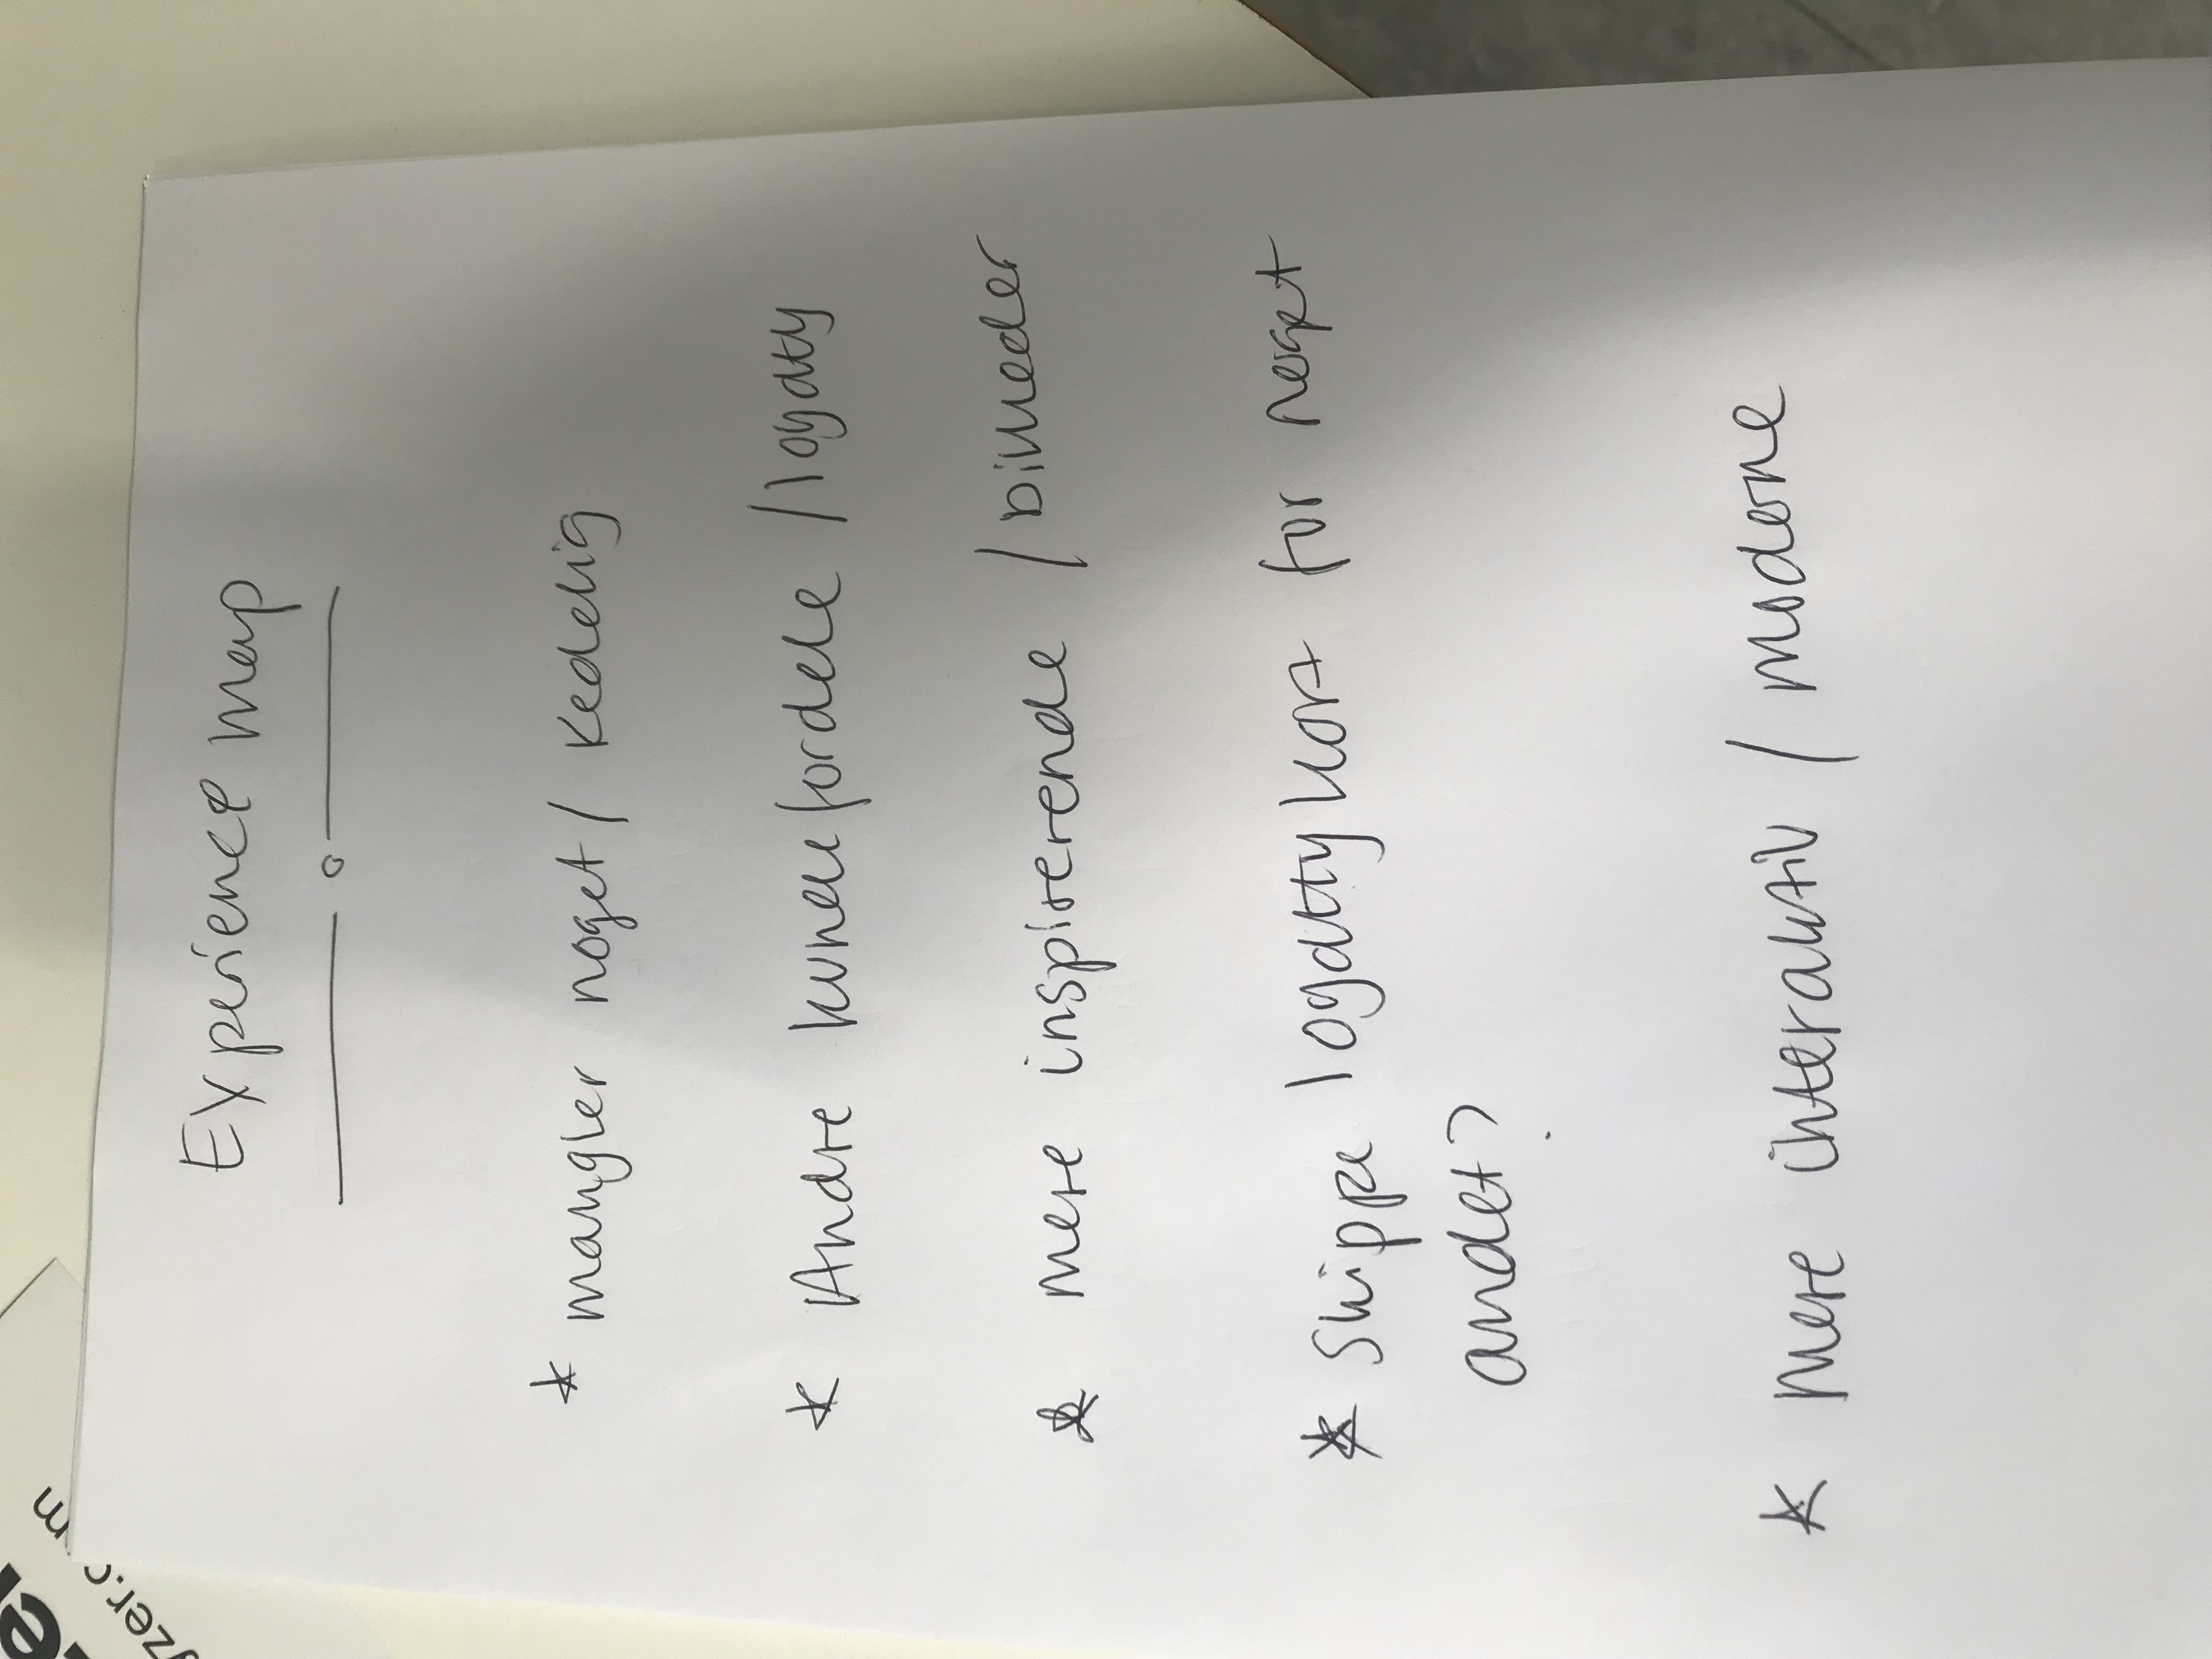 yzer.com
Experience map
* mangler noget / kedelig
* Andre kundefordele / loyalty
* mere inspirerende / billeder
* Skippe loyalty kort for noget
andet?
* Mere interaktiv / moderne